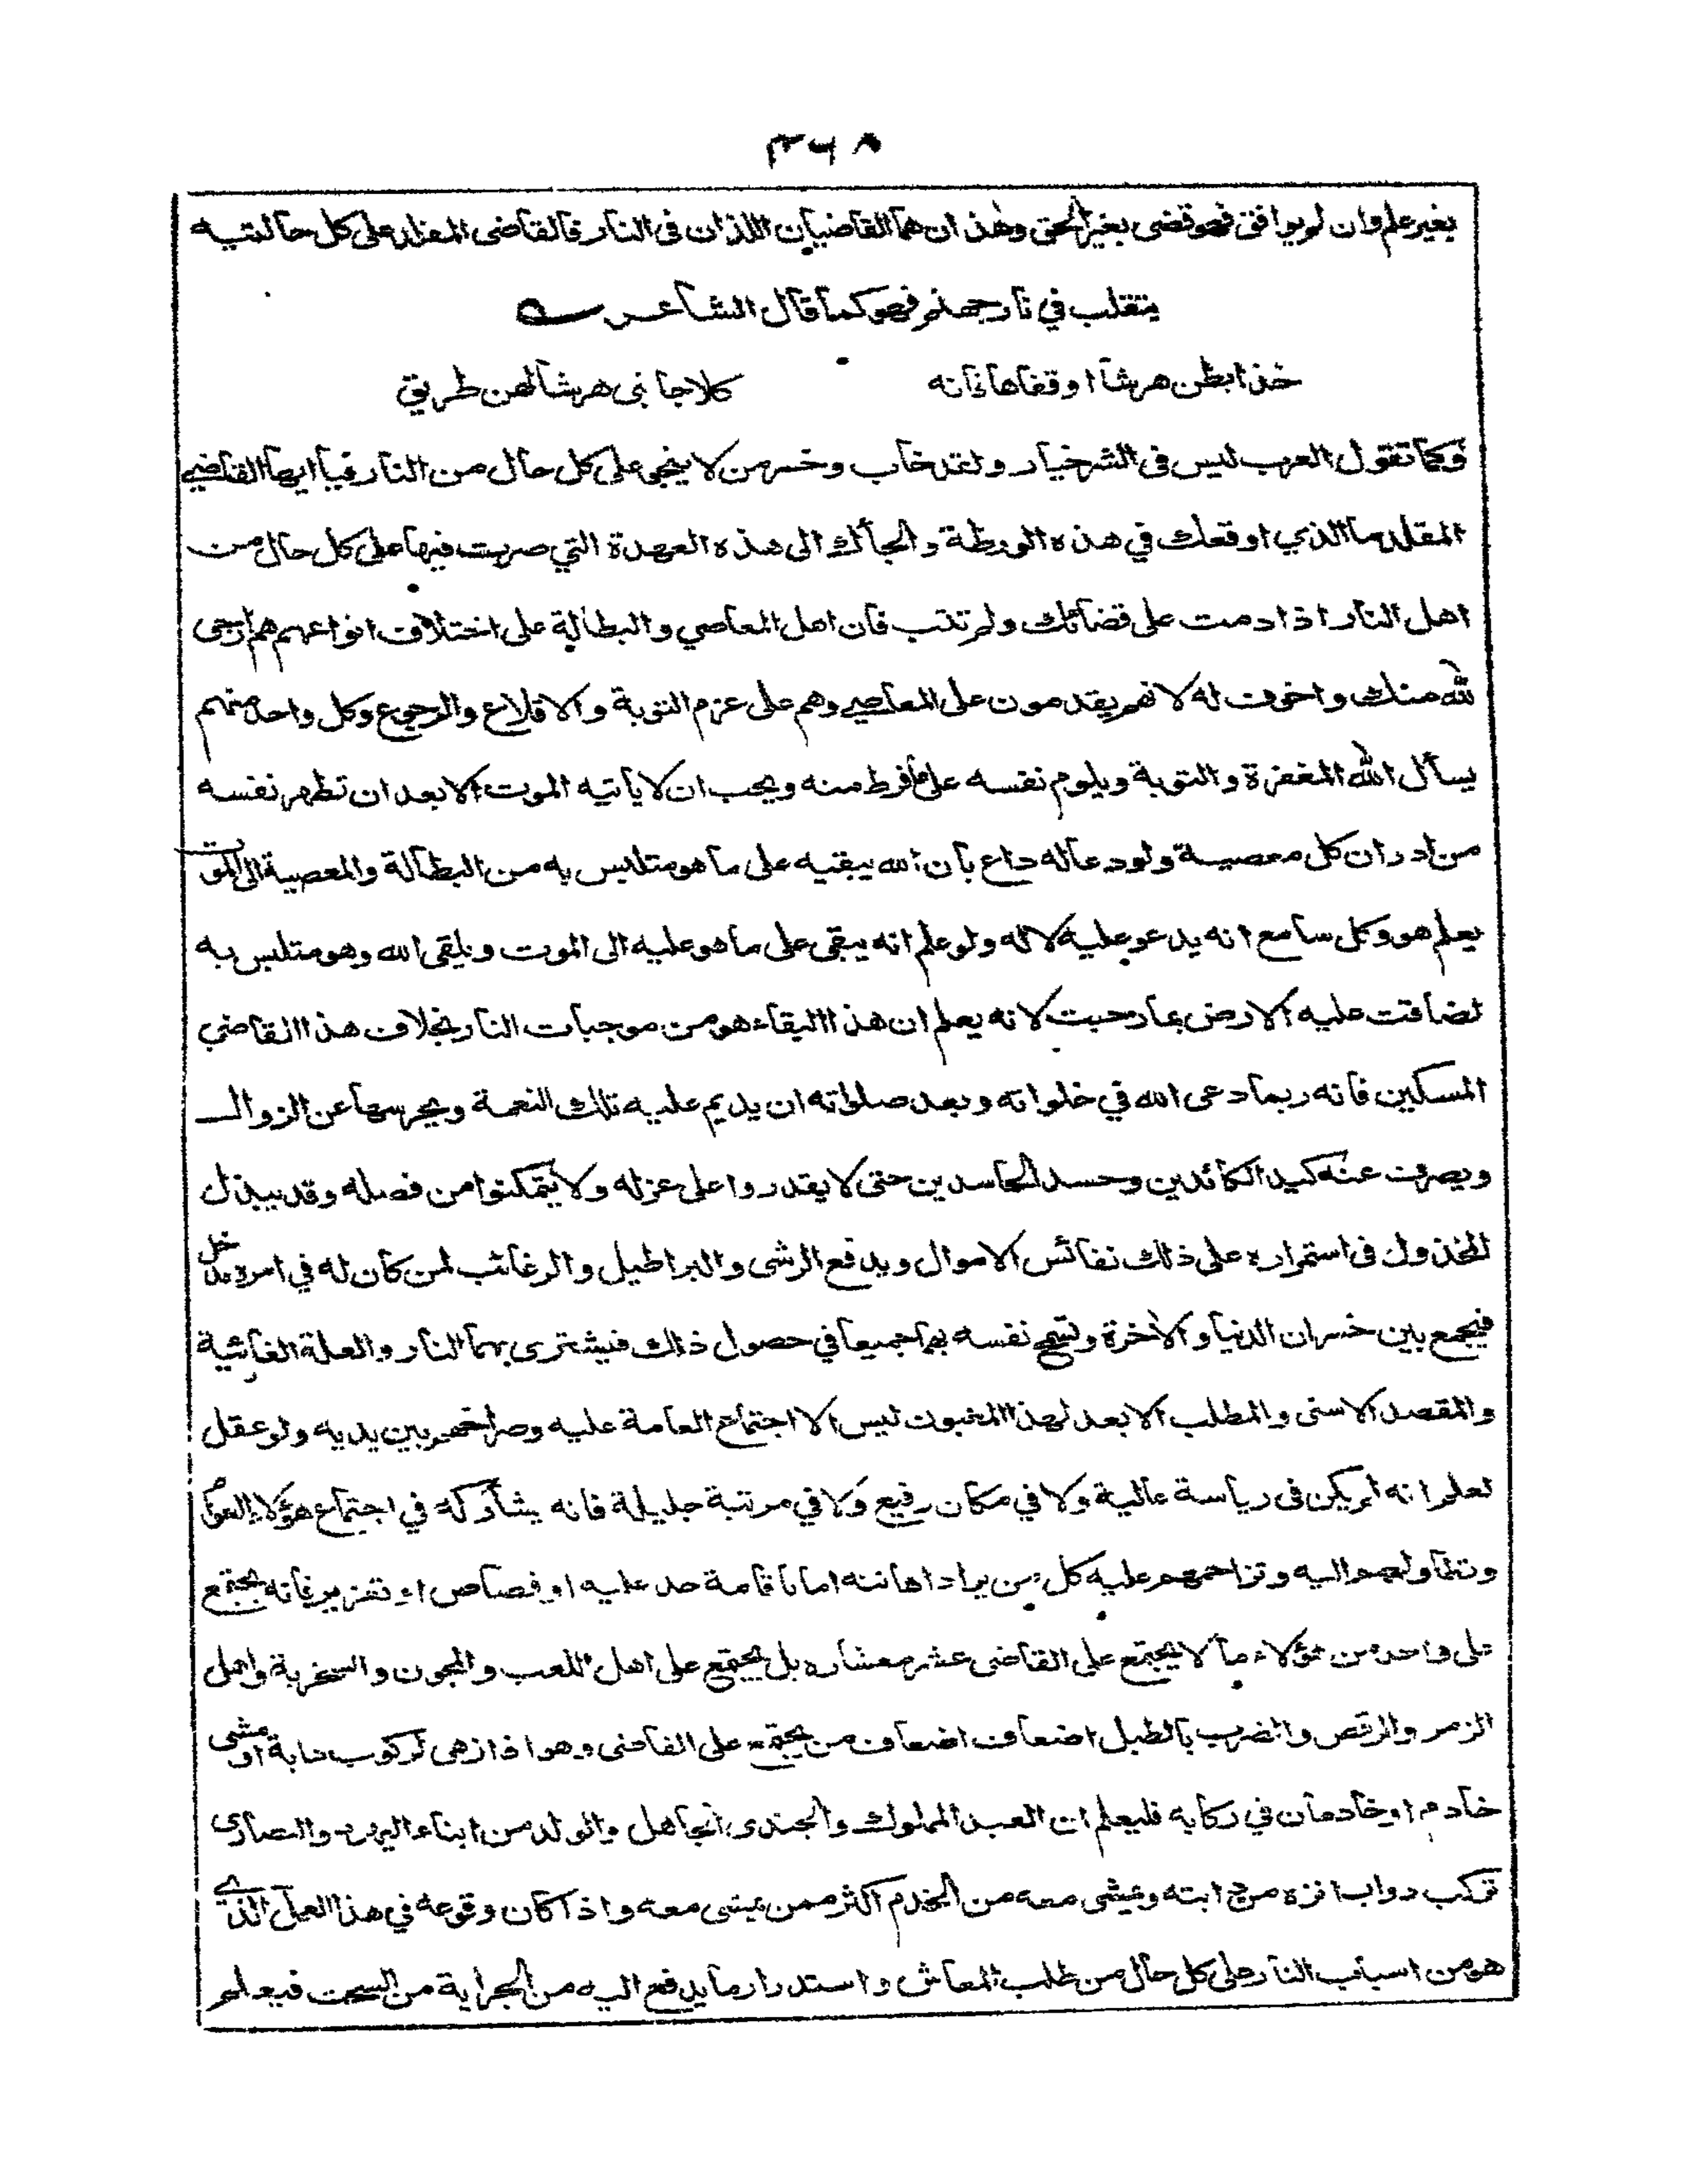 ٣٦٨
بغير علم وان لم يوافق فهو قضى بغير الحق وهذان هما القاضيان اللذان في النار فالقاضى المقلد على كل حالتيه
يتقلب في نار جهنم فهو كما قال الشاعر
خذا بطن هرشا او قفاها فانه كلا جانبى هرشا لهن طريق
وكما تقول العرب ليس فى الشر خيار ولقد خاب وخسر من لا ينجى على كل حال من النار فيا ايها القاضي
المقلد ما الذي اوقعك في هذه الورطة والجأك الى هذه العهدة التي صرت فيها على كل حال من
اهل النار اذا دمت على قضائك ولم تتب فان اهل المعاصي والبطالة على اختلاف انواعهم هم ارجى
لله منك واخوف له لانهم يقدمون على المعاصي وهم على عزم التوبة والاقلاع والرجوع وكل واحد منهم
يسأل الله المغفرة والتوبة ويلوم نفسه على ما فرط منه ويحب ان لا يأتيه الموت الا بعد ان تطهر نفسه
من ادران كل معصية ولو دعا له داع بان الله يبقيه على ما هو متلبس به من البطالة والمعصية الى الموت
يعلم هو وكل سامع انه يدعو عليه لا له ولو علم انه يبقى على ما هو عليه الى الموت ويلقى الله وهو متلبس به
لضاقت عليه الارض بما رحبت لانه يعلم ان هذا البقاء هو من موجبات النار بخلاف هذا القاضي
المسكين فانه ربما دعى الله في خلواته وبعد صلواته ان يديم عليه تلك النعمة ويحرسها عن الزوال
ويصرف عنه كيد الكائدين وحسد الحاسدين حتى لا يقدروا على عزله ولا يتمكنوا من فصله وقد يبذل
المخذول فى استمراره على ذلك نفائس الاموال ويدفع الرشى والبراطيل والرغائب لمن كان له في امره مدخل
فيجمع بين خسران الدنيا والاخرة وتسمح نفسه بهما جميعا في حصول ذلك فيشترى بهما النار والعلة الغائية
والمقصد الاسنى والمطلب الابعد لهذا المغبون ليس الا اجتماع العامة عليه وصراخهم بين يديه ولو عقل
لعلم انه لم يكن فى رياسة عالية ولا في مكان رفيع ولا في مرتبة جليلة فانه يشاركه في اجتماع هؤلاء العوام
وتطاولهم اليه وتزاحمهم عليه كل من يراد اهانته اما باقامة حد عليه او قصاص او تعزير فانه يجتمع
على واحد من هؤلاء ما لا يجتمع على القاضى عشر معشاره بل يجتمع على اهل اللعب والمجون والسخرية واهل
الزمر والرقص والضرب بالطبل اضعاف اضعاف من يجتمع على القاضى وهو اذا زهى لركوب دابة او مشى
خادم او خادمان في ركابه فليعلم ان العبد المملوك والجندى الجاهل والولد من ابناء اليهود والنصارى
تركب دواب افره من دابته ويمشى معه من الخدم اكثر ممن يمشى معه واذا كان وقوعه في هذا العمل الذي
هو من اسباب النار على كل حال من طلب المعاش واستدرار ما يدفع اليه من الجراية من السحت فيعلم